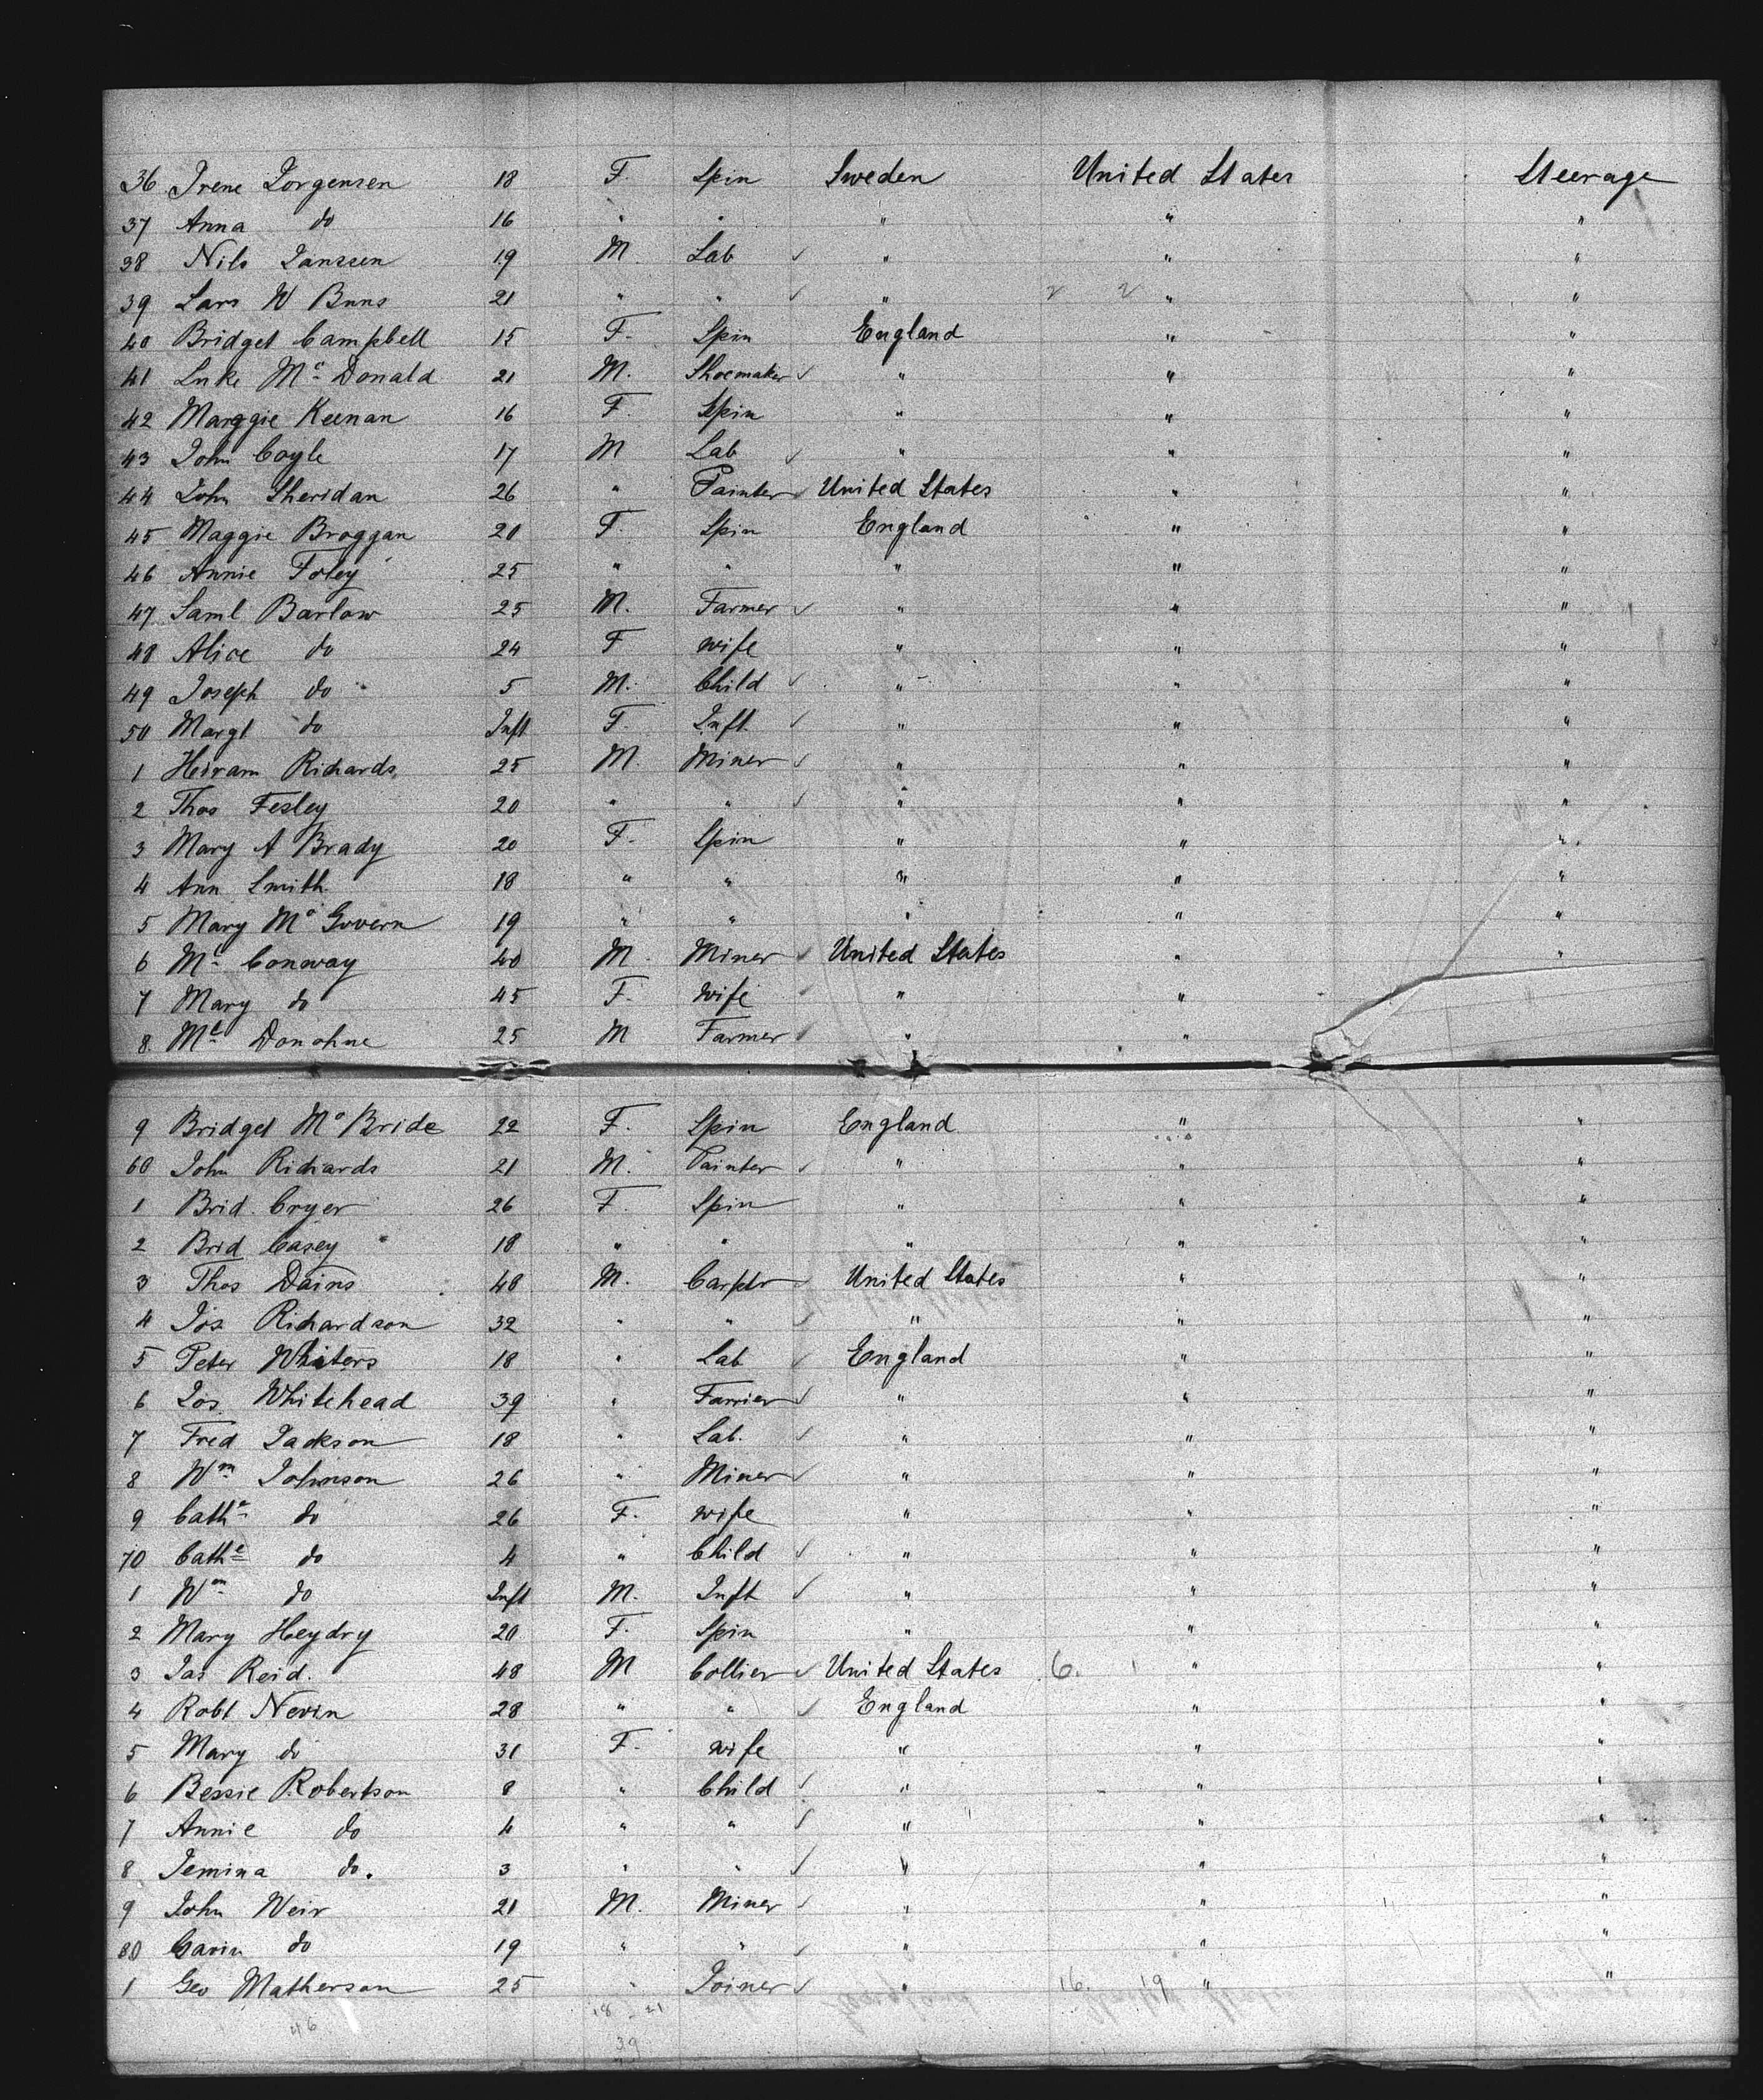 36 Irene Jorgensen 18 F. Spin Sweden United States Steerage
37 Anna do 16 " " " " "
38 Nils Janssen 19 M. Lab " " "
39 Lars W Buns 21 " " " " "
40 Bridget Campbell 15 F. Spin England " "
41 Luke Mc Donald 21 M. Shoemaker " " "
42 Marggie Keenan 16 F. Spin " " "
43 John Coyle 17 M Lab " " "
44 John Sheridan 26 " Painter United States " "
45 Maggie Broggan 20 F. Spin England " "
46 Annie Foley 25 " " " " "
47 Saml Barlow 25 M. Farmer " " "
48 Alice do 24 F wife " " "
49 Joseph do 5 M. Child " " "
50 Margt do Inft F. Inft. " " "
1 Heiram Richards 25 M. Miner " " "
2 Thos Fesley 20 " " " " "
3 Mary A Brady 20 F. Spin " " "
4 Ann Smith 18 " " " " "
5 Mary Mc Govern 19 " " " " "
6 Ml Conway 40 M. Miner United States " "
7 Mary do 45 F. wife " "
8. Ml Donohue 25 M Farmer " "
9 Bridget Mc Bride 22 F. Spin England " "
60 John Richards 21 M. Painter " " "
1 Brid. Cryer 26 F. Spin " " "
2 Brid Casey 18 " " " " "
3 Thos Dains 48 M. Carptr United States " "
4 Jos Richardson 32 " " " " "
5 Peter Whiters 18 " Lab England " "
6 Jos. Whitehead 39 " Farrier " " "
7 Fred Jackson 18 " Lab. " " "
8 Wm Johnson 26 " Miner " " "
9 Cathe do 26 F. wife " " "
70 Cathe do 4 " Child " " "
1 Wm do Inft M. Inft " " "
2 Mary Heydry 20 F. Spin " " "
3 Jas Reid. 48 M Collier United States 6. 1 " "
4 Robt Nevin 28 " " England " "
5 Mary do 31 F. wife " " "
6 Bessie Robertson 8 " Child " " "
7 Annie do 4 " " " " "
8 Jemina do. 3 " " " " "
9 John Weir 21 M. Miner " " "
80 Gavin do 19 " " " " "
1 Geo Matherson 25 " Joiner " 16. 19 " "
18 21
46 39